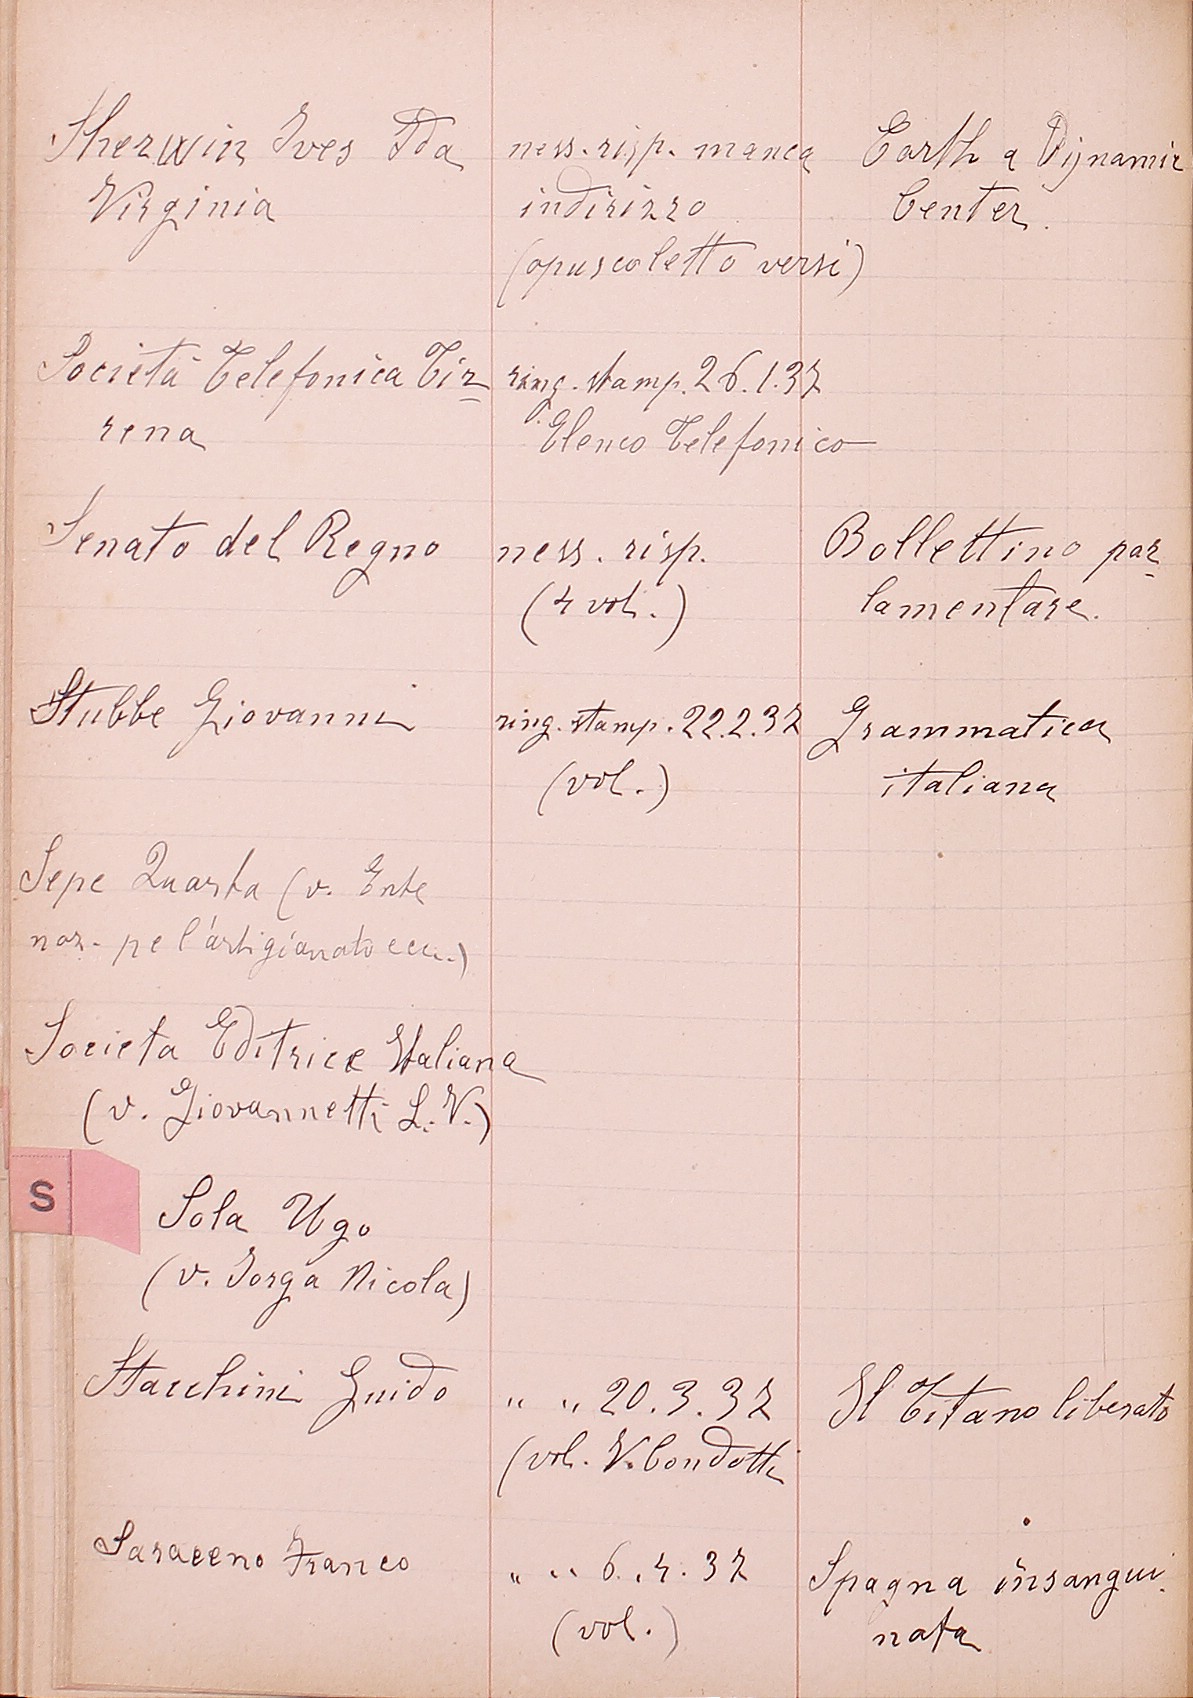 Sherwin Ives Ida
Virginia
ness. risp. manca
indirizzo
(opuscoletto versi)
Earth a Dijnamic
Center.
Società Telefonica Tir-
rena
ring. stamp. 26.1.37
Elenco Telefonico
Senato del Regno
ness. risp.
(4 vol.)
Bollettino par-
lamentare.
Stubbe Giovanni
ring. stamp. 22.2.37
(vol.)
Grammatica
italiana
Sepe Quarta (v. Ente
naz. pe l'artigianato ecc..)
Societa Editrice Italiana
(v. Giovannetti L. V.)
S
Sola Ugo
(v. Jorga Nicola)
Stacchini Guido
" " 20.3.37
(vol. V. Condotti
Il Titano liberato
Saraceno Franco
" " 6.4.37
(vol.)
Spagna insangui-
nata